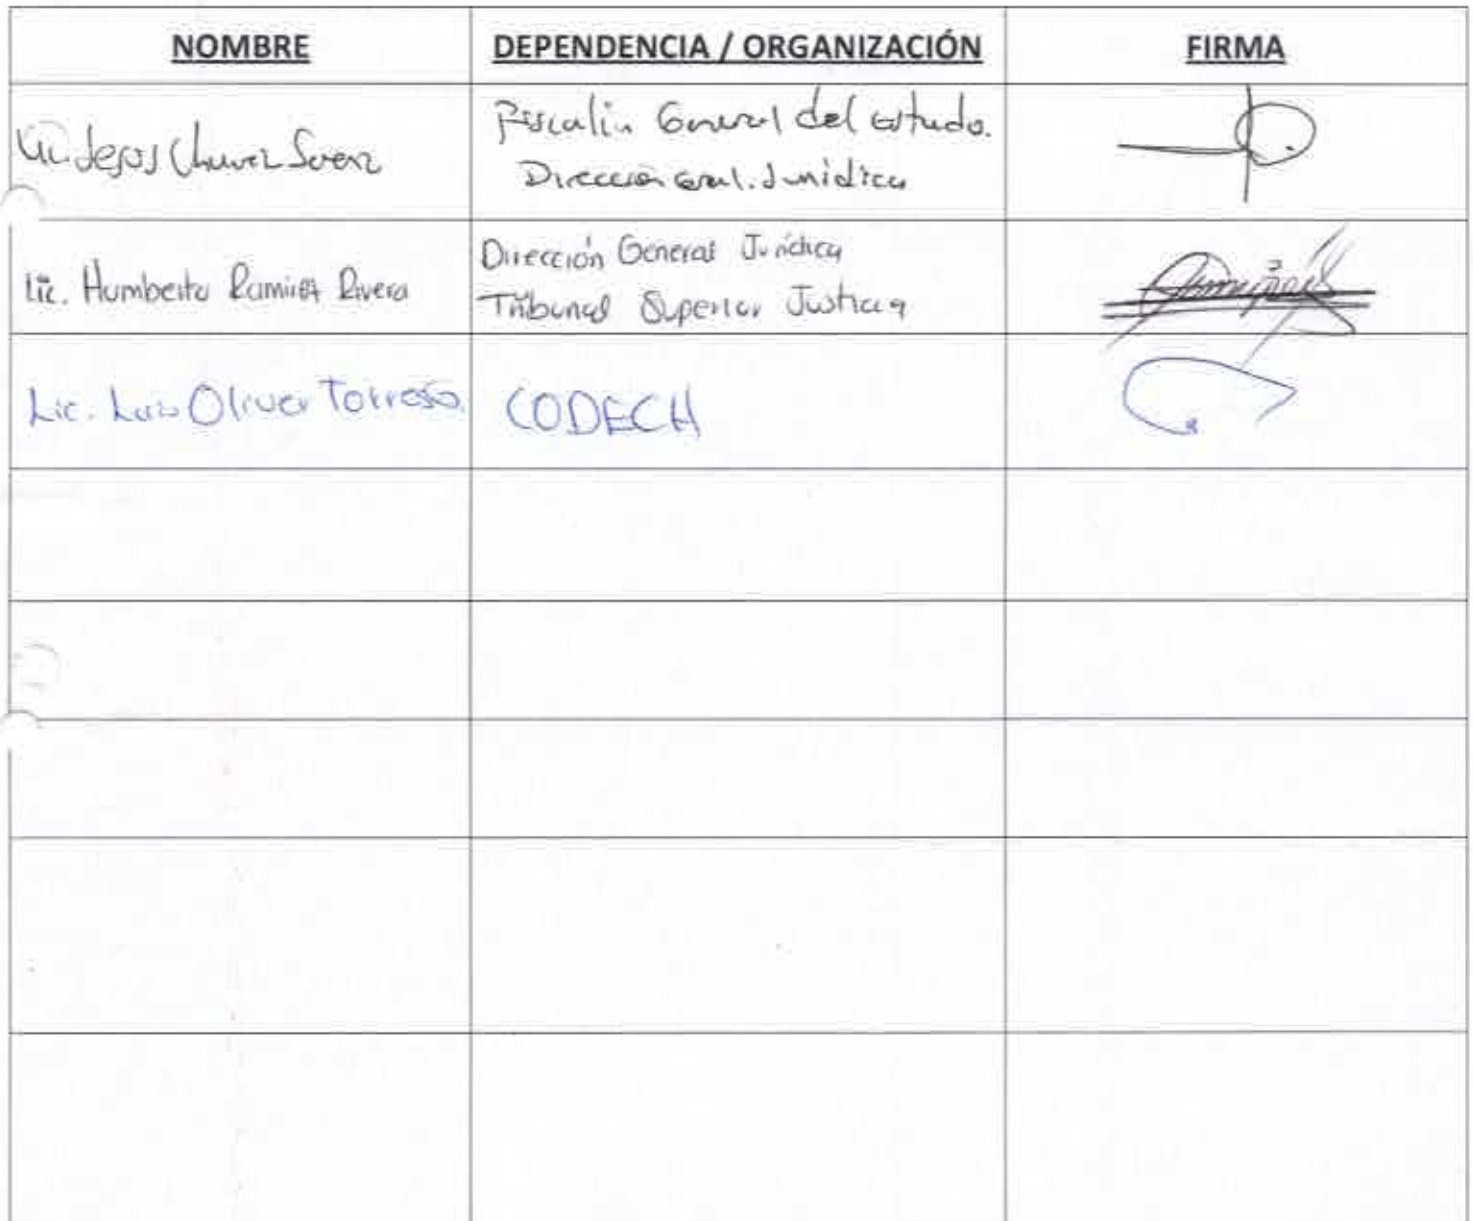 NOMBRE DEPENDENCIA / ORGANIZACIÓN FIRMA
Lic. Jesus Chavez Saenz
Fiscalia General del estado.
Dirección Gral. Jurídica
Lic. Humberto Ramirez Rivera
Dirección General Jurídica
Tribunal Superior Justicia
Lic. Luis Oliver CODECH